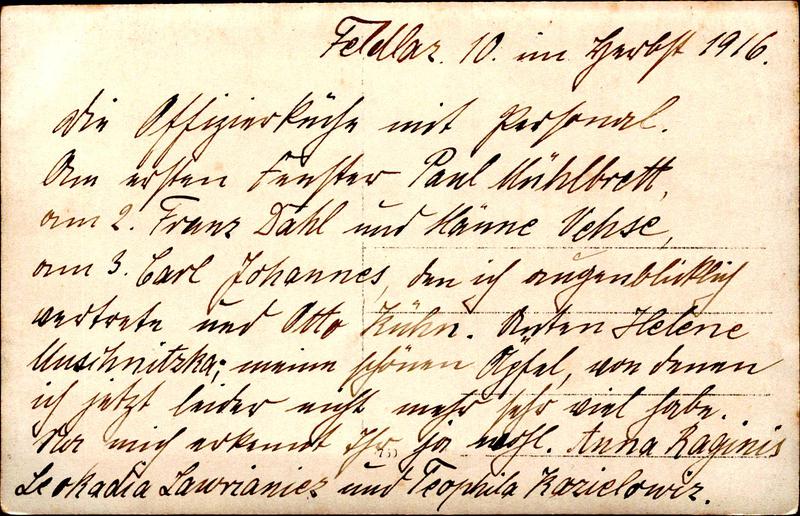 Feldlaz. 10. im Herbst 1916.
Die Offizierküche mit Personal.
Am ersten Fenster Paul Mühlbrett,
am 2. Franz Dahl und Hänne Vehse,
am 3. Carl Johannes, den ich augenblicklich
vertrete und Otto Kühn. Unten Helene
Muschnitzka; meine schönen Äpfel, von denen
ich jetzt leider nicht mehr sehr viel habe.
mich erkennt Ihr ja wohl. Anna Raginis
Leokadia Lawrianiez und Teophila Kazielowiz.